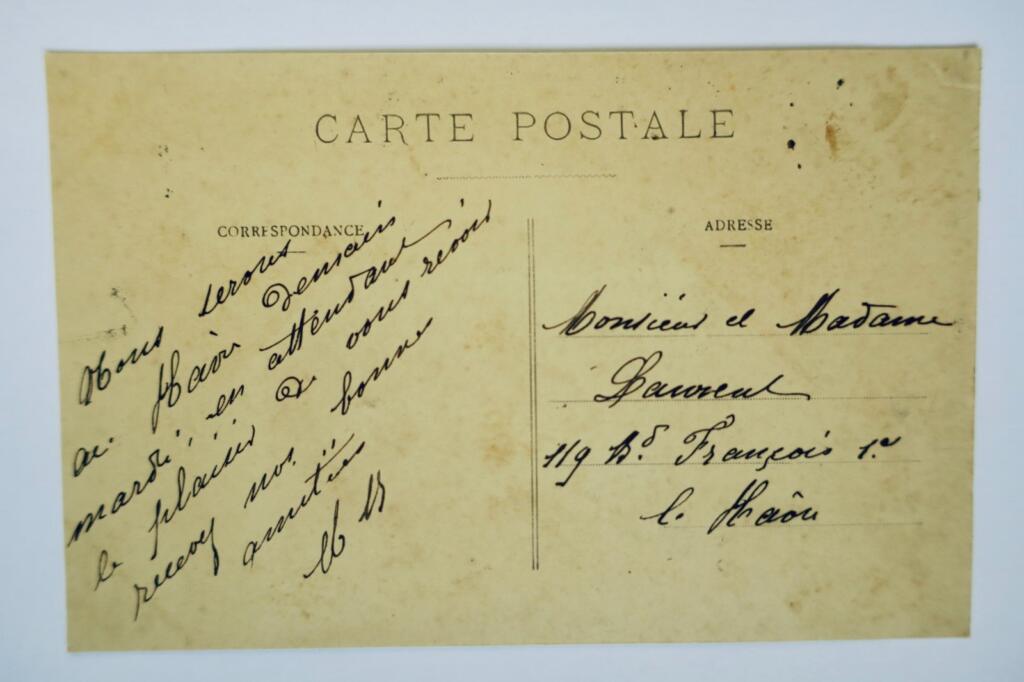 CARTE POSTALE
CORRESPONDANCE
Nous serons
au Havre demain
mardi, en attendant
le plaisir de vous revoir
recevez nos bonne
amitiés
M B
ADRESSE
Monsieur et Madame
Laurent
119 Bd François 1er
le Hâvre